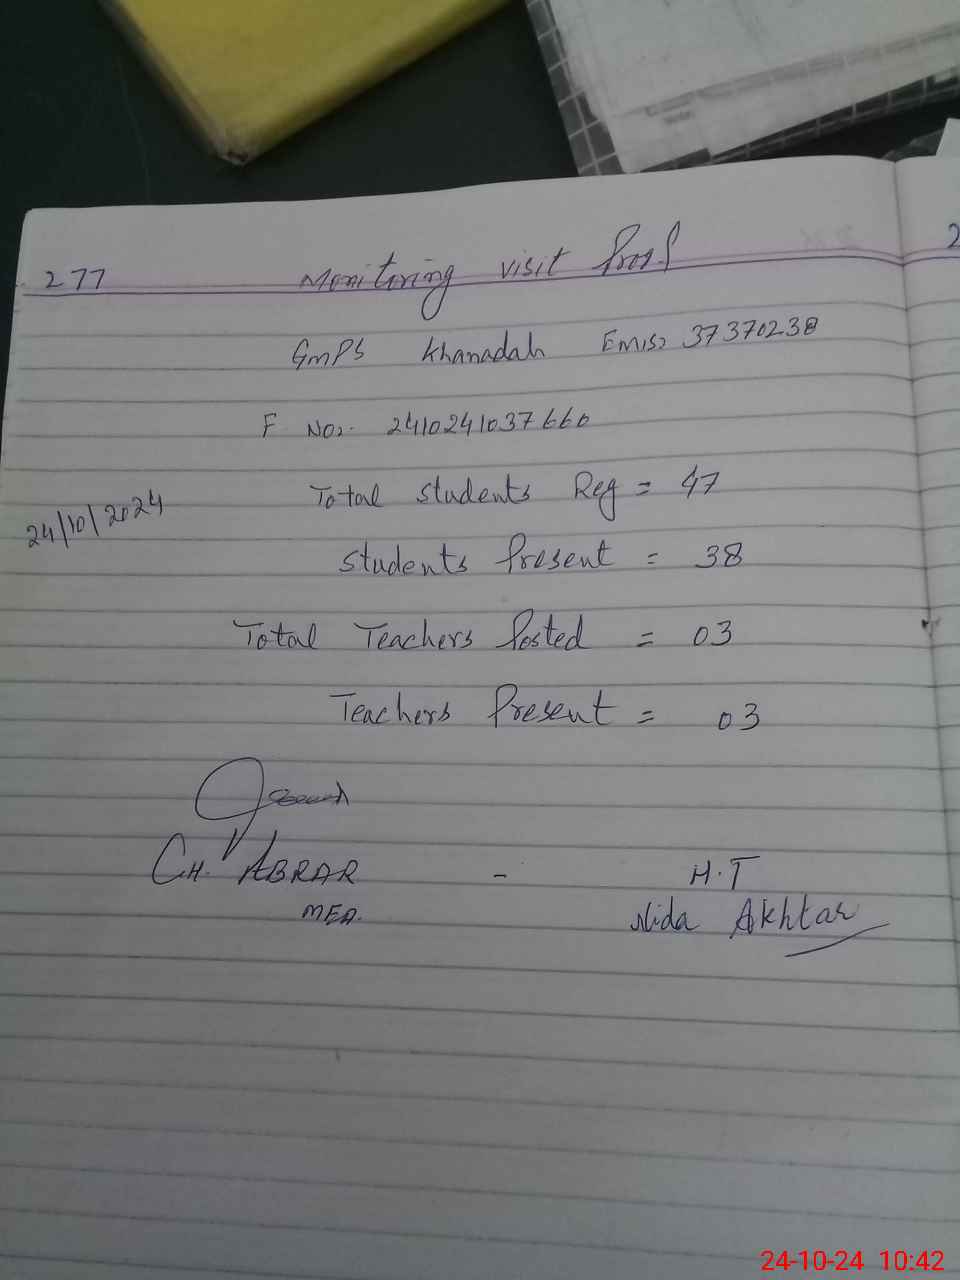 277
Monitoring visit Proof
GMPS Khanadah Emis: 37370238
F No:- 2410241037660
24/10/2024
Total students Reg = 47
Students Present = 38
Total Teachers Posted = 03
Teachers Present = 03
CH. ABRAR - H.T
MEA. Nida Akhtar
24-10-24 10:42